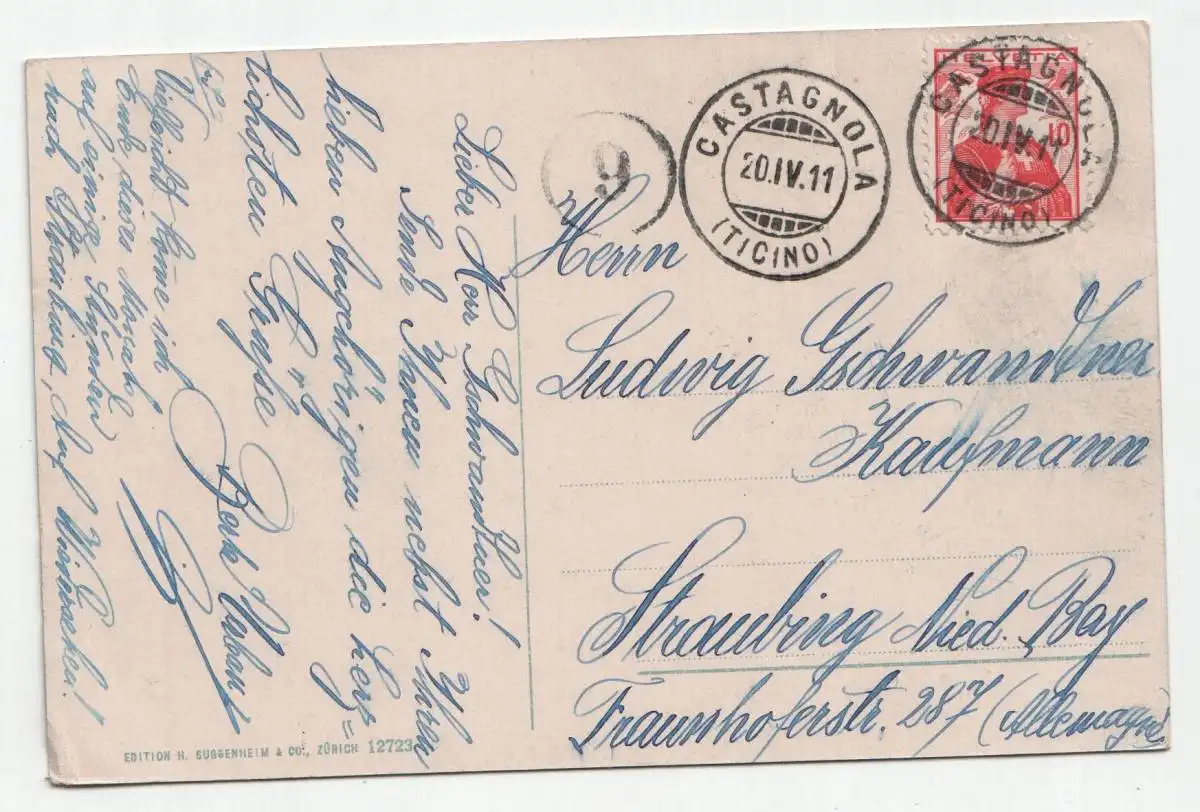 HELVETIA
10
CASTAGNOLA
20.IV.11
(TICINO)
CASTAGNOLA
20.IV.11
(TICINO)
9
Herrn
Ludwig Gschwandtner
Kaufmann
Straubing Nied. Bay
Fraunhoferstr. 287 (Allemagne)
Lieber Herr Gschwandtner!
Sende Ihnen nebst Ihren
lieben Angehörigen die herz=
lichsten Grüsse
Vielleicht kom̄e ich
Ende dieses Monats
auf einige Stunden
nach Straubing, Auf Wiedersehen!
EDITION H. GUGGENHEIM & Co., ZÜRICH 12723